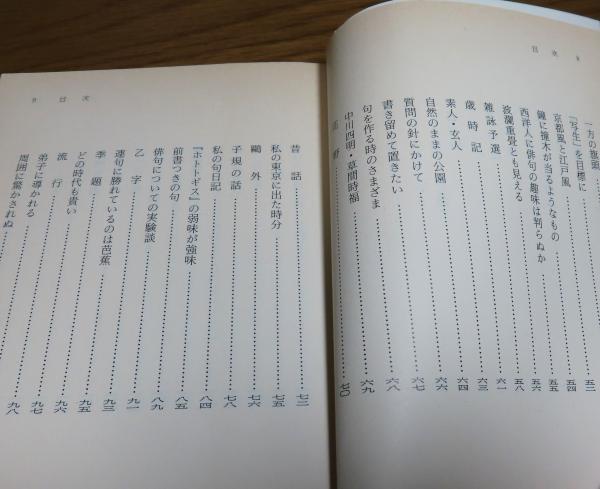 目次 8
一方の旗頭
「写生」を目標に
京都風と江戸風……五二
鐘に撞木が当るようなもの……五四
西洋人に俳句の趣味は判らぬか……五五
波瀾重畳とも見える……五六
雑詠予選……五八
歳時記……六一
素人・玄人……六三
自然のままの公園……六四
質問の針にかけて……六六
書き留めて置きたい……六七
句を作る時のさまざま……六八
中川四明・草間時福……六九
……七〇
9 目次
昔話……七二
私の東京に出た時分……七五
鷗外……七六
子規の話……七八
私の句日記……八四
『ホトトギス』の弱味が強味……八五
前書つきの句……八九
俳句についての実験談……九一
乙字……九三
連句に勝れているのは芭蕉……九五
季題……九六
どの時代も貴い……九七
流行……九八
弟子に導かれる
周囲に驚かされぬ